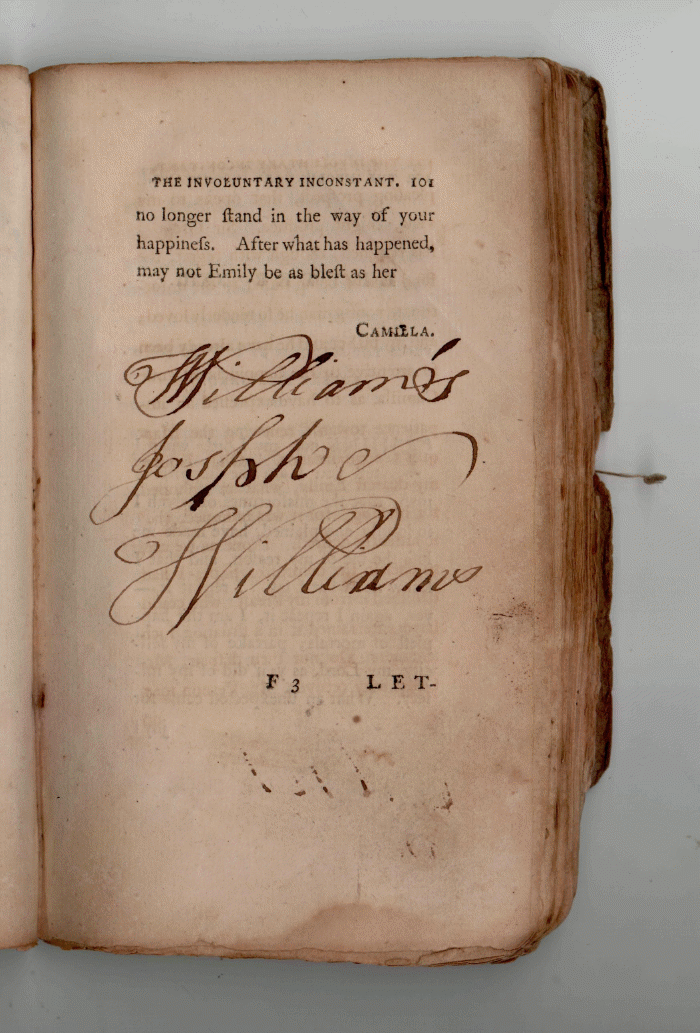 THE INVOLUNTARY INCONSTANT. 101
no longer ſtand in the way of your
happineſs. After what has happened,
may not Emily be as bleſt as her
CAMILLA.
Williams
Joseph
Williams
F 3 LET-